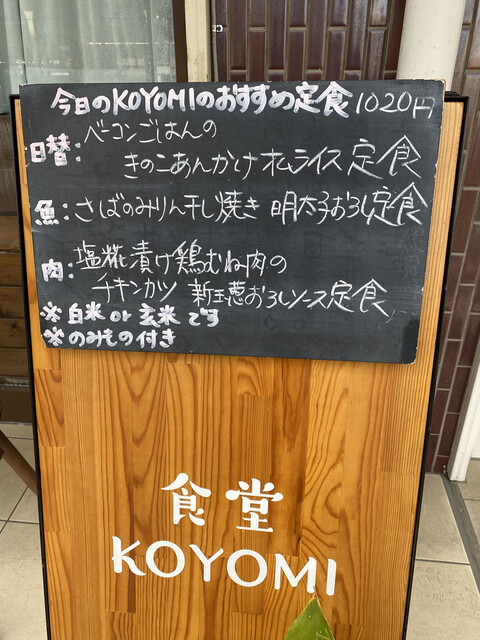 今日のKOYOMIのおすすめ定食 1020円
日替: ベーコンごはんの
きのこあんかけオムライス定食
魚: さばのみりん干し焼き 明太子おろし定食
肉: 塩糀漬け鶏むね肉の
チキンカツ 新玉葱おろしソース定食
※白米or玄米です
※のみもの付き
食堂
KOYOMI